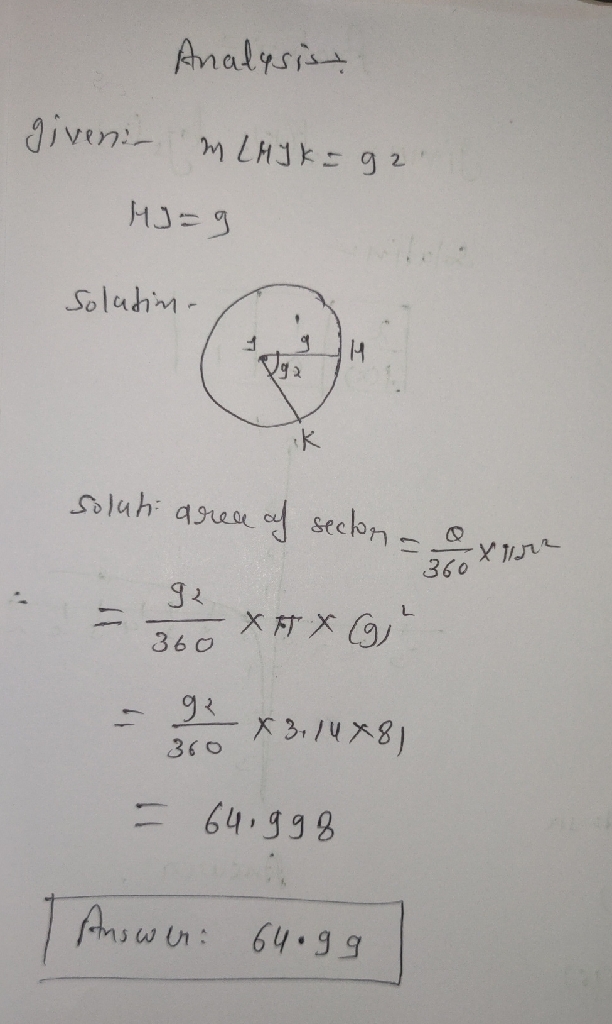 Analysis:-
given:- m∠HJK = 92
HJ = 9
Solution -
J 9 H
92
K
Soluti: area of sector = θ/360 × πr²
∴ = 92/360 × π × (9)²
= 92/360 × 3.14 × 81
= 64.998
Answer: 64.99